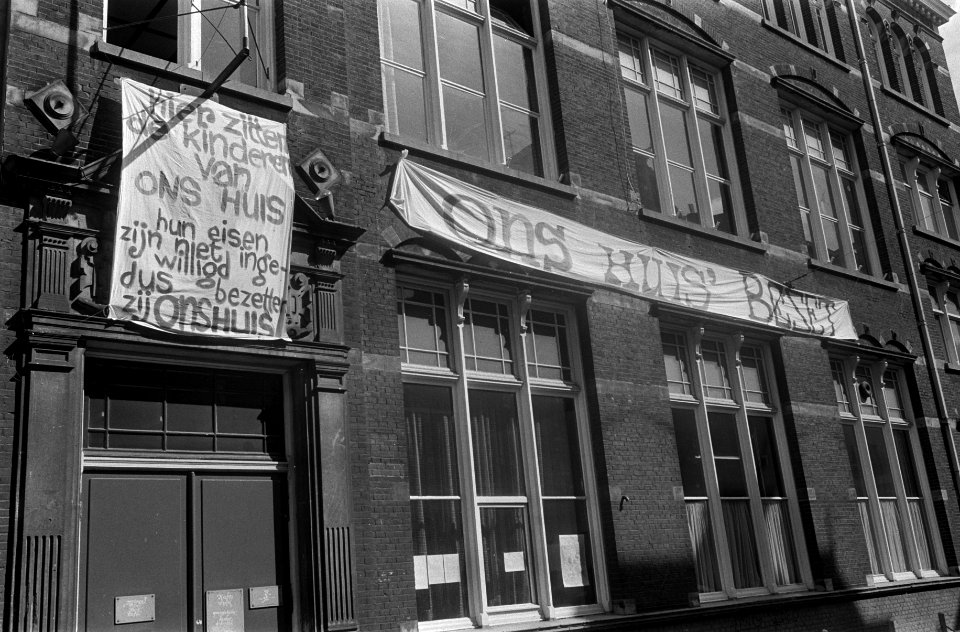 hier zitten
de kinderen
van
ONS HUIS
hun eisen
zijn niet inge-
willigd
dus bezetten
zij ONS HUIS
Ons HUIS BEZET